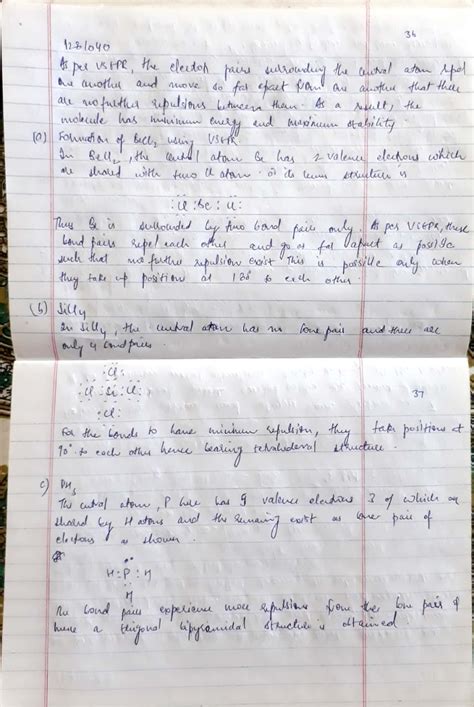 36
1281040
As per VSEPR, the electron pairs surrounding the central atom repel
one another and move so far apart from one another that there
are no further repulsions between them. As a result, the
molecule has minimum energy and maximum stability.
(a) Formation of BeCl2 using VSEPR
In BeCl2, the central atom Be has 2 valence electrons which
are shared with two Cl atom. its structure is
:Cl : Be : Cl:
Thus Be is surrounded by two bond pairs only. As per VSEPR, these
bond pairs repel each other and go as far apart as possible
such that no further repulsion exist This is possible only when
they take up position at 180° to each other
(b)
In , the central atom has no lone pair and there are
only 4 bond pairs.
37
:Cl:
:Cl : Si : Cl:
:Cl:
For the bonds to have minimum repulsion, they take positions at
90° to each other hence bearing tetrahedral structure.
c) PH3
The central atom, P here has valence electrons 3 of which are
shared by H atoms and the remaining exist as lone pair of
electrons as shown.
H : P : H
H
bond pairs experience more repulsions from the lone pair &
hence a trigonal bipyramidal structure is obtained.